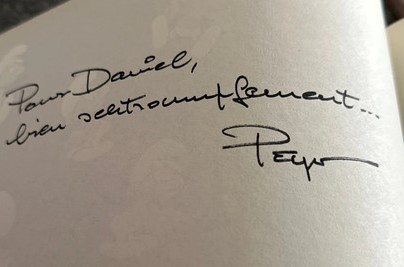 Pour Daniel,
bien schtroumpfement...
Peyo